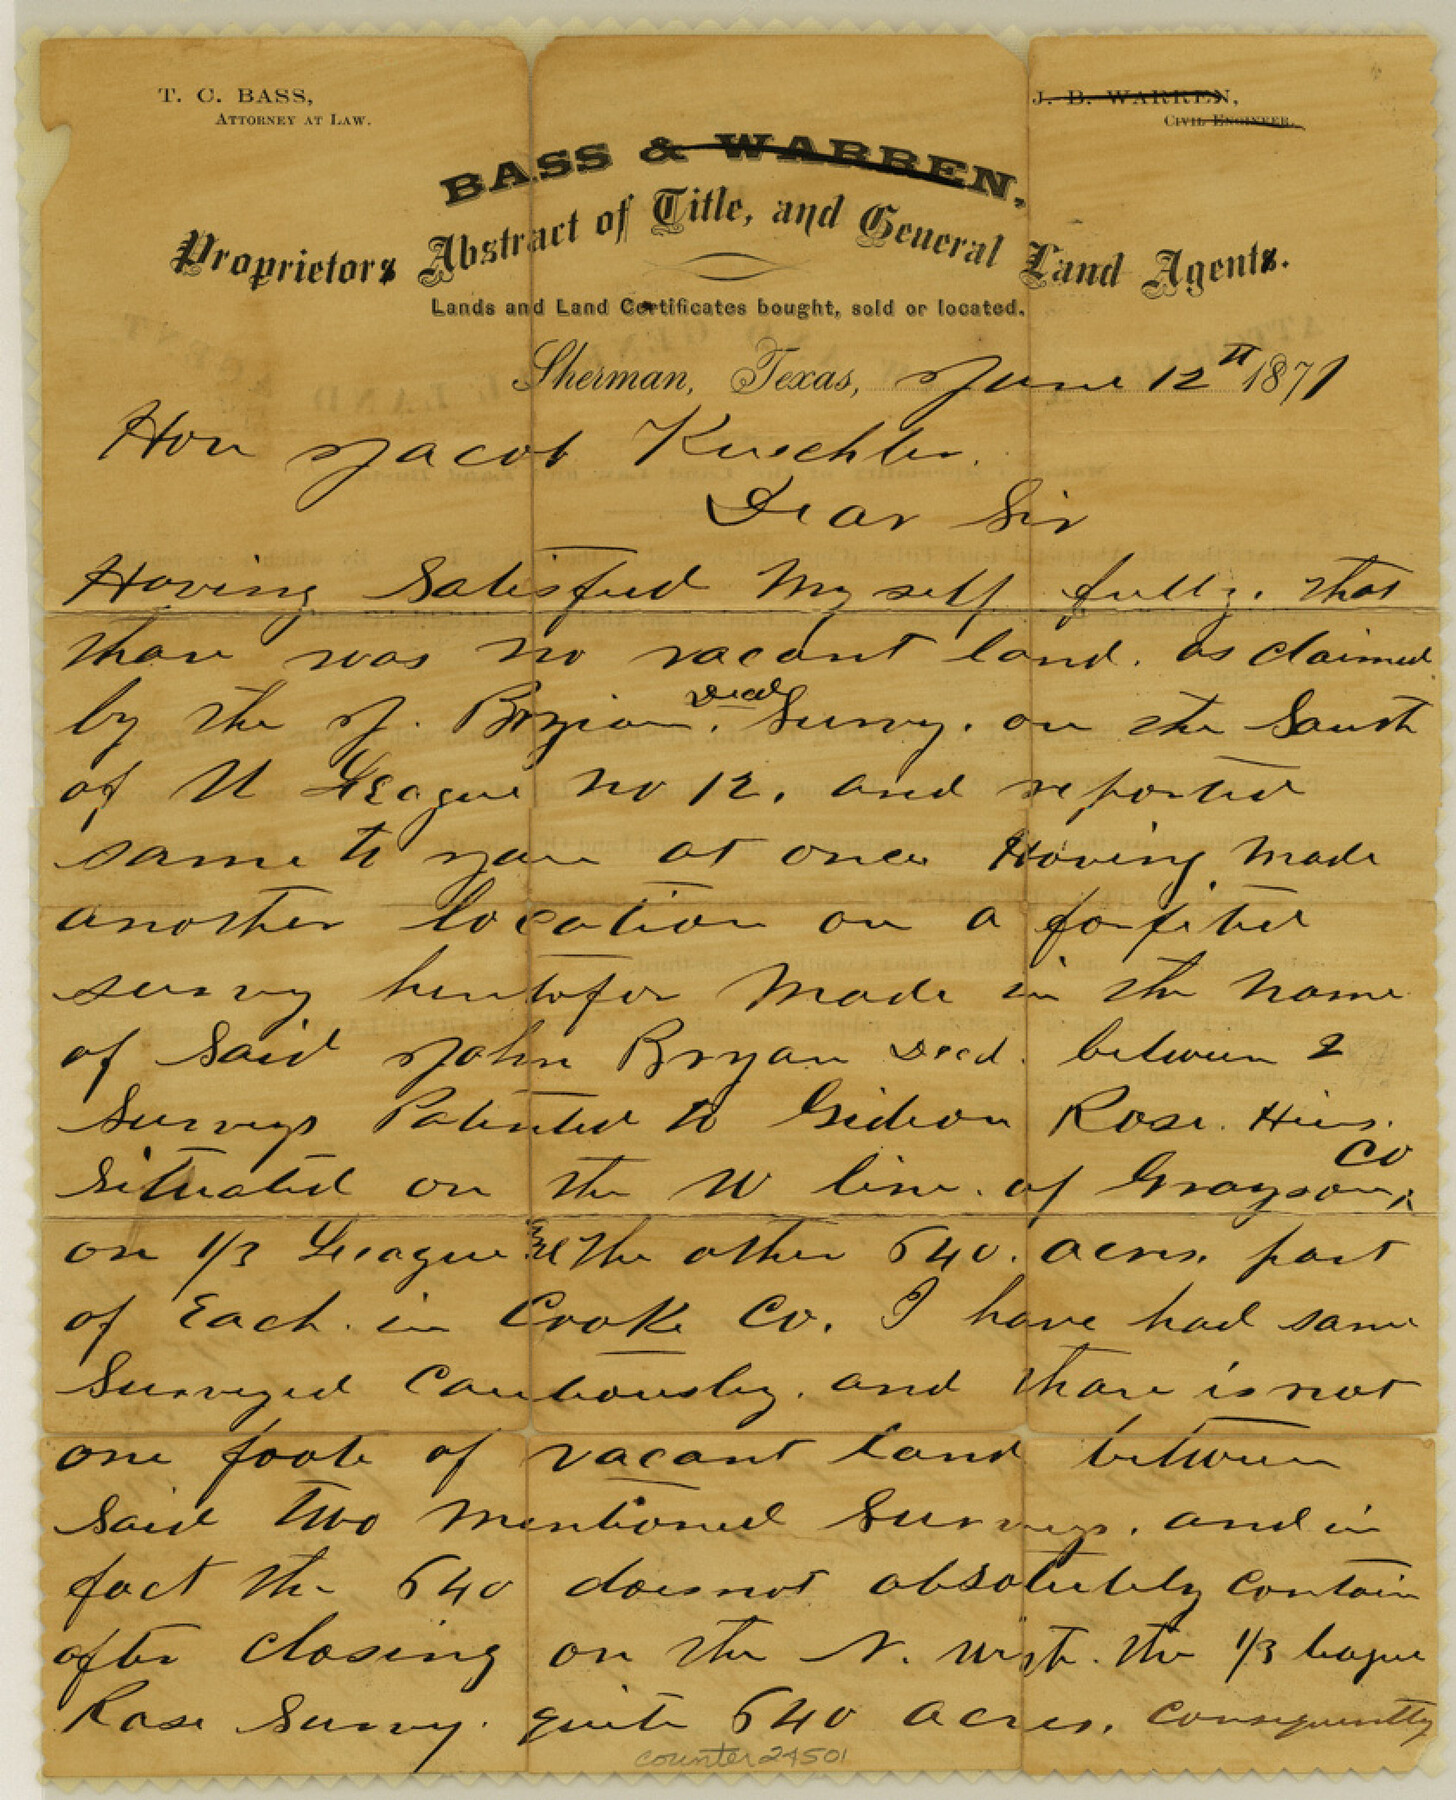 T. C. BASS,
ATTORNEY AT LAW.
J. B. WARREN,
CIVIL ENGINEER.
BASS & WARREN,
Proprietors Abstract of Title, and General Land Agents.
Lands and Land Certificates bought, sold or located.
Sherman, Texas, June 12th 1871
Hon Jacob Kuechler.
Dear Sir
Having Satisfied My self fully. that
thare was no vacant land. as claimed
by the J. Bryian. Decd Survy. on the South
of U League no 12. and reported
same to you at once Having Made
another location on a forfited
survy heretofor Made in the Name
of Said John Bryan Decd. between 2
Surveys Patented to Gideon Rose. Hirs.
Situated on the W line. of Grayson Co;
on 1/3 League and the other 640. acres. part
of Each. in Cooke Co. I have had same
Surveyed Cautiously. and thare is not
one foote of vacant land between
Said two Mentioned Surveys. and in
fact the 640 does not absolutely Contain
after closing on the N. with. the 1/3 league
Rose Survy. quite 640 acres. Consequently
counter 24501